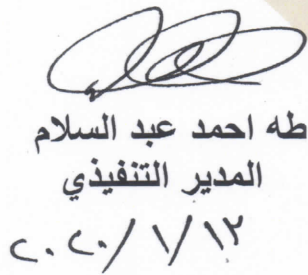 طه احمد عبد السلام
المدير التنفيذي
٢٠٢٠/١/١٢